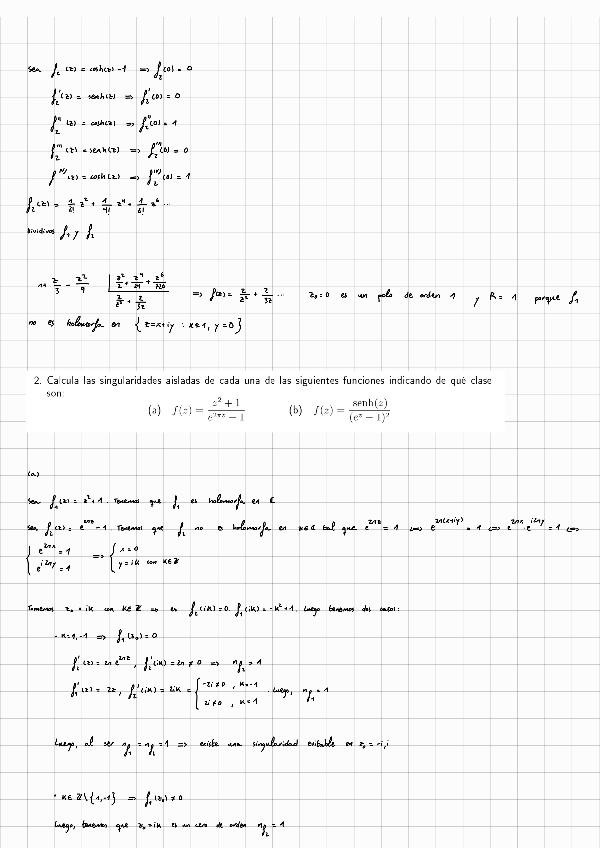 Sea f₂(z) = cosh(z) - 1 ⟹ f₂(0) = 0
f₂'(z) = senh(z) ⟹ f₂'(0) = 0
f₂''(z) = cosh(z) ⟹ f₂''(0) = 1
f₂'''(z) = senh(z) ⟹ f₂'''(0) = 0
f^(IV)(z) = cosh(z) ⟹ f₂^(IV)(0) = 1
f₂(z) = 1/2! z² + 1/4! z⁴ + 1/6! z⁶ ...
Dividimos f₁ y f₂
z/3 - z²/9 | z²/2 + z⁴/24 + z⁶/720
⟹ f(z) = 2/z² + 2/3z ... z₀=0 es un polo de orden 1 y R = 1 porque f₁
no es holomorfa en {z=x+iy : x≤1, y=0}
2. Calcula las singularidades aisladas de cada una de las siguientes funciones indicando de qué clase
son:
(a) f(z) = (z² + 1)/(e^{2πz} - 1) (b) f(z) = senh(z)/(e^z - 1)²
(a)
Sea f₁(z) = z²+1. Tenemos que f₁ es holomorfa en ℂ
Sea f₂(z) = e^{2πz} - 1. Tenemos que f₂ no es holomorfa en z∈ℂ tal que e^{2πz} = 1 ⟺ e^{2π(x+iy)} = 1 ⟺ e^{2πx} e^{i2πy} = 1 ⟺
{ e^{2πx} = 1 ⟹ { x = 0
e^{i2πy} = 1 y = ik con k∈ℤ
Tomemos z₀ = ik con k∈ℤ ⟹ es f₂(ik) = 0. f₁(ik) = -k²+1. Luego tenemos dos casos:
· k=1,-1 ⟹ f₁(z₀) = 0
f₂'(z) = 2π e^{2πz}, f₂'(ik) = 2π ≠ 0 ⟹ n_{f₂} = 1
f₁'(z) = 2z, f₂'(ik) = 2ik = { -2i ≠ 0 , k=-1
2i ≠ 0 , k=1 . Luego, n_{f₁} = 1
Luego, al ser n_{f₁} = n_{f₂} = 1 ⟹ existe una singularidad evitable en z₀ = -i,i
· k∈ℤ\{1,-1} ⟹ f₁(z₀) ≠ 0
Luego, tenemos que z₀=ik es un cero de orden n_{f₂} = 1